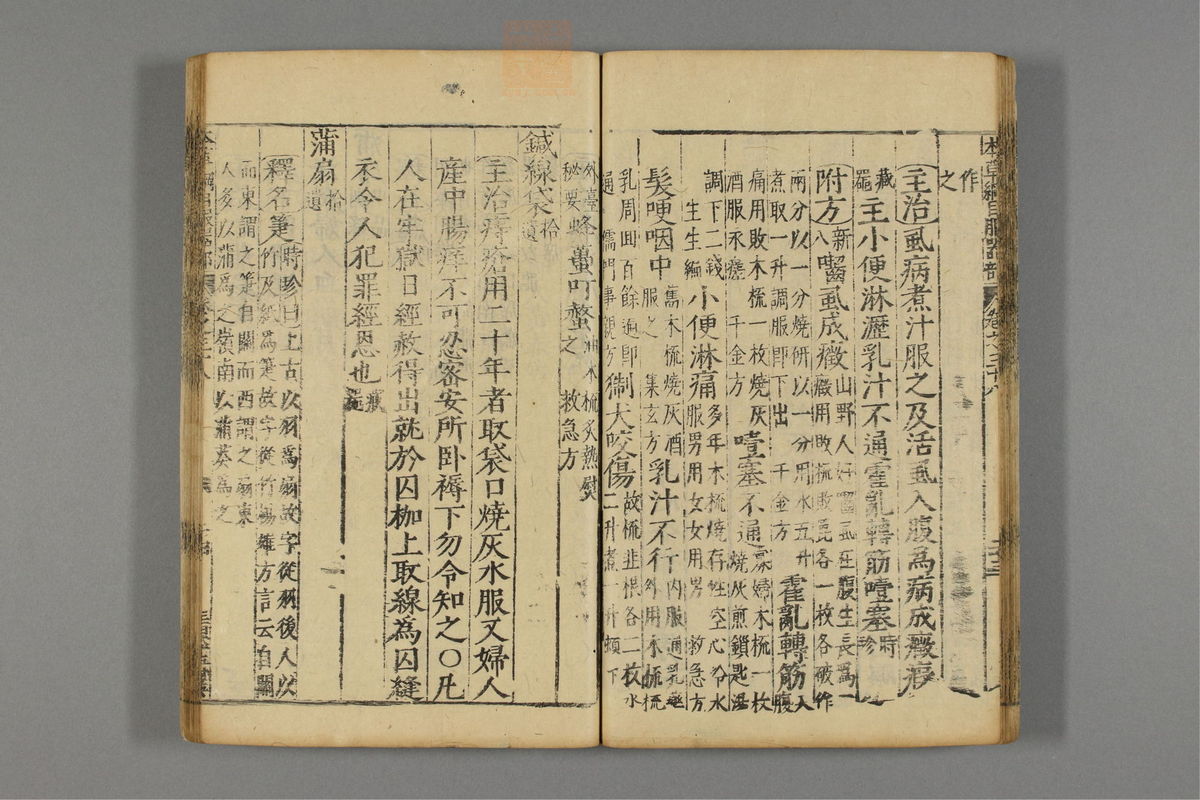 作
之
主治虱病煮汁服之及活虱入腹為病成癥瘕
藏器主小便淋瀝乳汁不通霍亂轉筋噎塞時珍
附方新八嚙虱成癥山野人好嚙虱在腹生長為
癥用敗梳敗篦各一枚各破作
兩分以一分燒研以一分用水五升
煮取一升調服即下出千金方霍亂轉筋入腹
痛用敗木梳一枚燒灰
酒服永瘥千金方噎塞不通寡婦木梳一枚
燒灰煎鎖匙湯
調下二錢
生生編小便淋痛多年木梳燒存性空心冷水
服男用女女用男救急方
髮哽咽中舊木梳燒灰酒
服之集玄方乳汁不行內服通乳藥
外用木梳梳
乳周回百餘遍即
通儒門事親方猘犬咬傷故梳韭根各二枚水
二升煮一升頓下
外臺
秘要蜂蠆叮螫油木梳炙熱熨
之救急方
鍼線袋拾遺
主治痔瘡用二十年者取袋口燒灰水服又婦人
產中腸痒不可忍密安所臥褥下勿令知之○凡
人在牢獄日經赦得出就於囚枷上取線為囚縫
衣令人犯罪經恩也藏器
蒲扇拾遺
釋名箑時珍曰上古以羽為扇故字從羽後人以
竹及紙為箑故字從竹揚雄方言云自關
而東謂之箑自關而西謂之扇東
人多以蒲為之嶺南以蒲葵為之